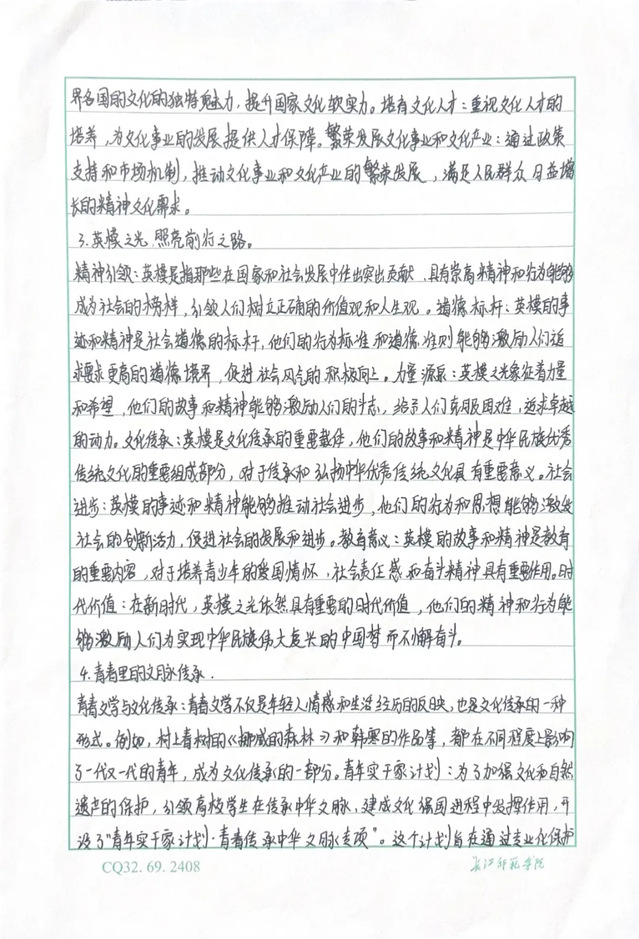 界各国的文化的独特魅力，提升国家文化软实力。培育文化人才：重视文化人才的
培养，为文化事业的发展提供人才保障。繁荣发展文化事业和文化产业：通过政策
支持和市场机制，推动文化事业和文化产业的繁荣发展，满足人民群众日益增
长的精神文化需求。
3.英模之光，照亮前行之路。
精神引领：英模是指那些在国家和社会发展中作出突出贡献，具有崇高精神和行为能够
成为社会的榜样，引领人们树立正确的价值观和人生观。道德标杆：英模的事
迹和精神是社会道德的标杆，他们的行为标准和道德准则能够激励人们追
求要求更高的道德境界，促进社会风气的积极向上。力量源泉：英模之光象征着力量
和希望，他们的故事和精神能够激励人们的斗志，给予人们克服困难，追求卓越
的动力。文化传承：英模是文化传承的重要载体，他们的故事和精神是中华民族优秀
传统文化的重要组成部分，对于传承和弘扬中华优秀传统文化具有重要意义。社会
进步：英模的事迹和精神能够推动社会进步，他们的行为和思想能够激发
社会的创新活力，促进社会的发展和进步。教育意义：英模的故事和精神是教育
的重要内容，对于培养青少年的爱国情怀、社会责任感和奋斗精神具有重要作用。时
代价值：在新时代，英模之光依然具有重要的时代价值，他们的精神和行为能
够激励人们为实现中华民族伟大复兴的中国梦而不懈奋斗。
4.青春里的文脉传承.
青春文学与文化传承：青春文学不仅是年轻人情感和生活经历的反映，也是文化传承的一种
形式。例如，村上春树的《挪威的森林》和韩寒的作品等，都在不同程度上影响
了一代又一代的青年，成为文化传承的一部分。青年实干家计划：为了加强文化和自然
遗产的保护，引领高校学生在传承中华文脉，建成文化强国进程中发挥作用，开
设了“青年实干家计划·青春传承中华文脉专项”。这个计划旨在通过专业化保护
CQ32.69.2408
长江师范学院